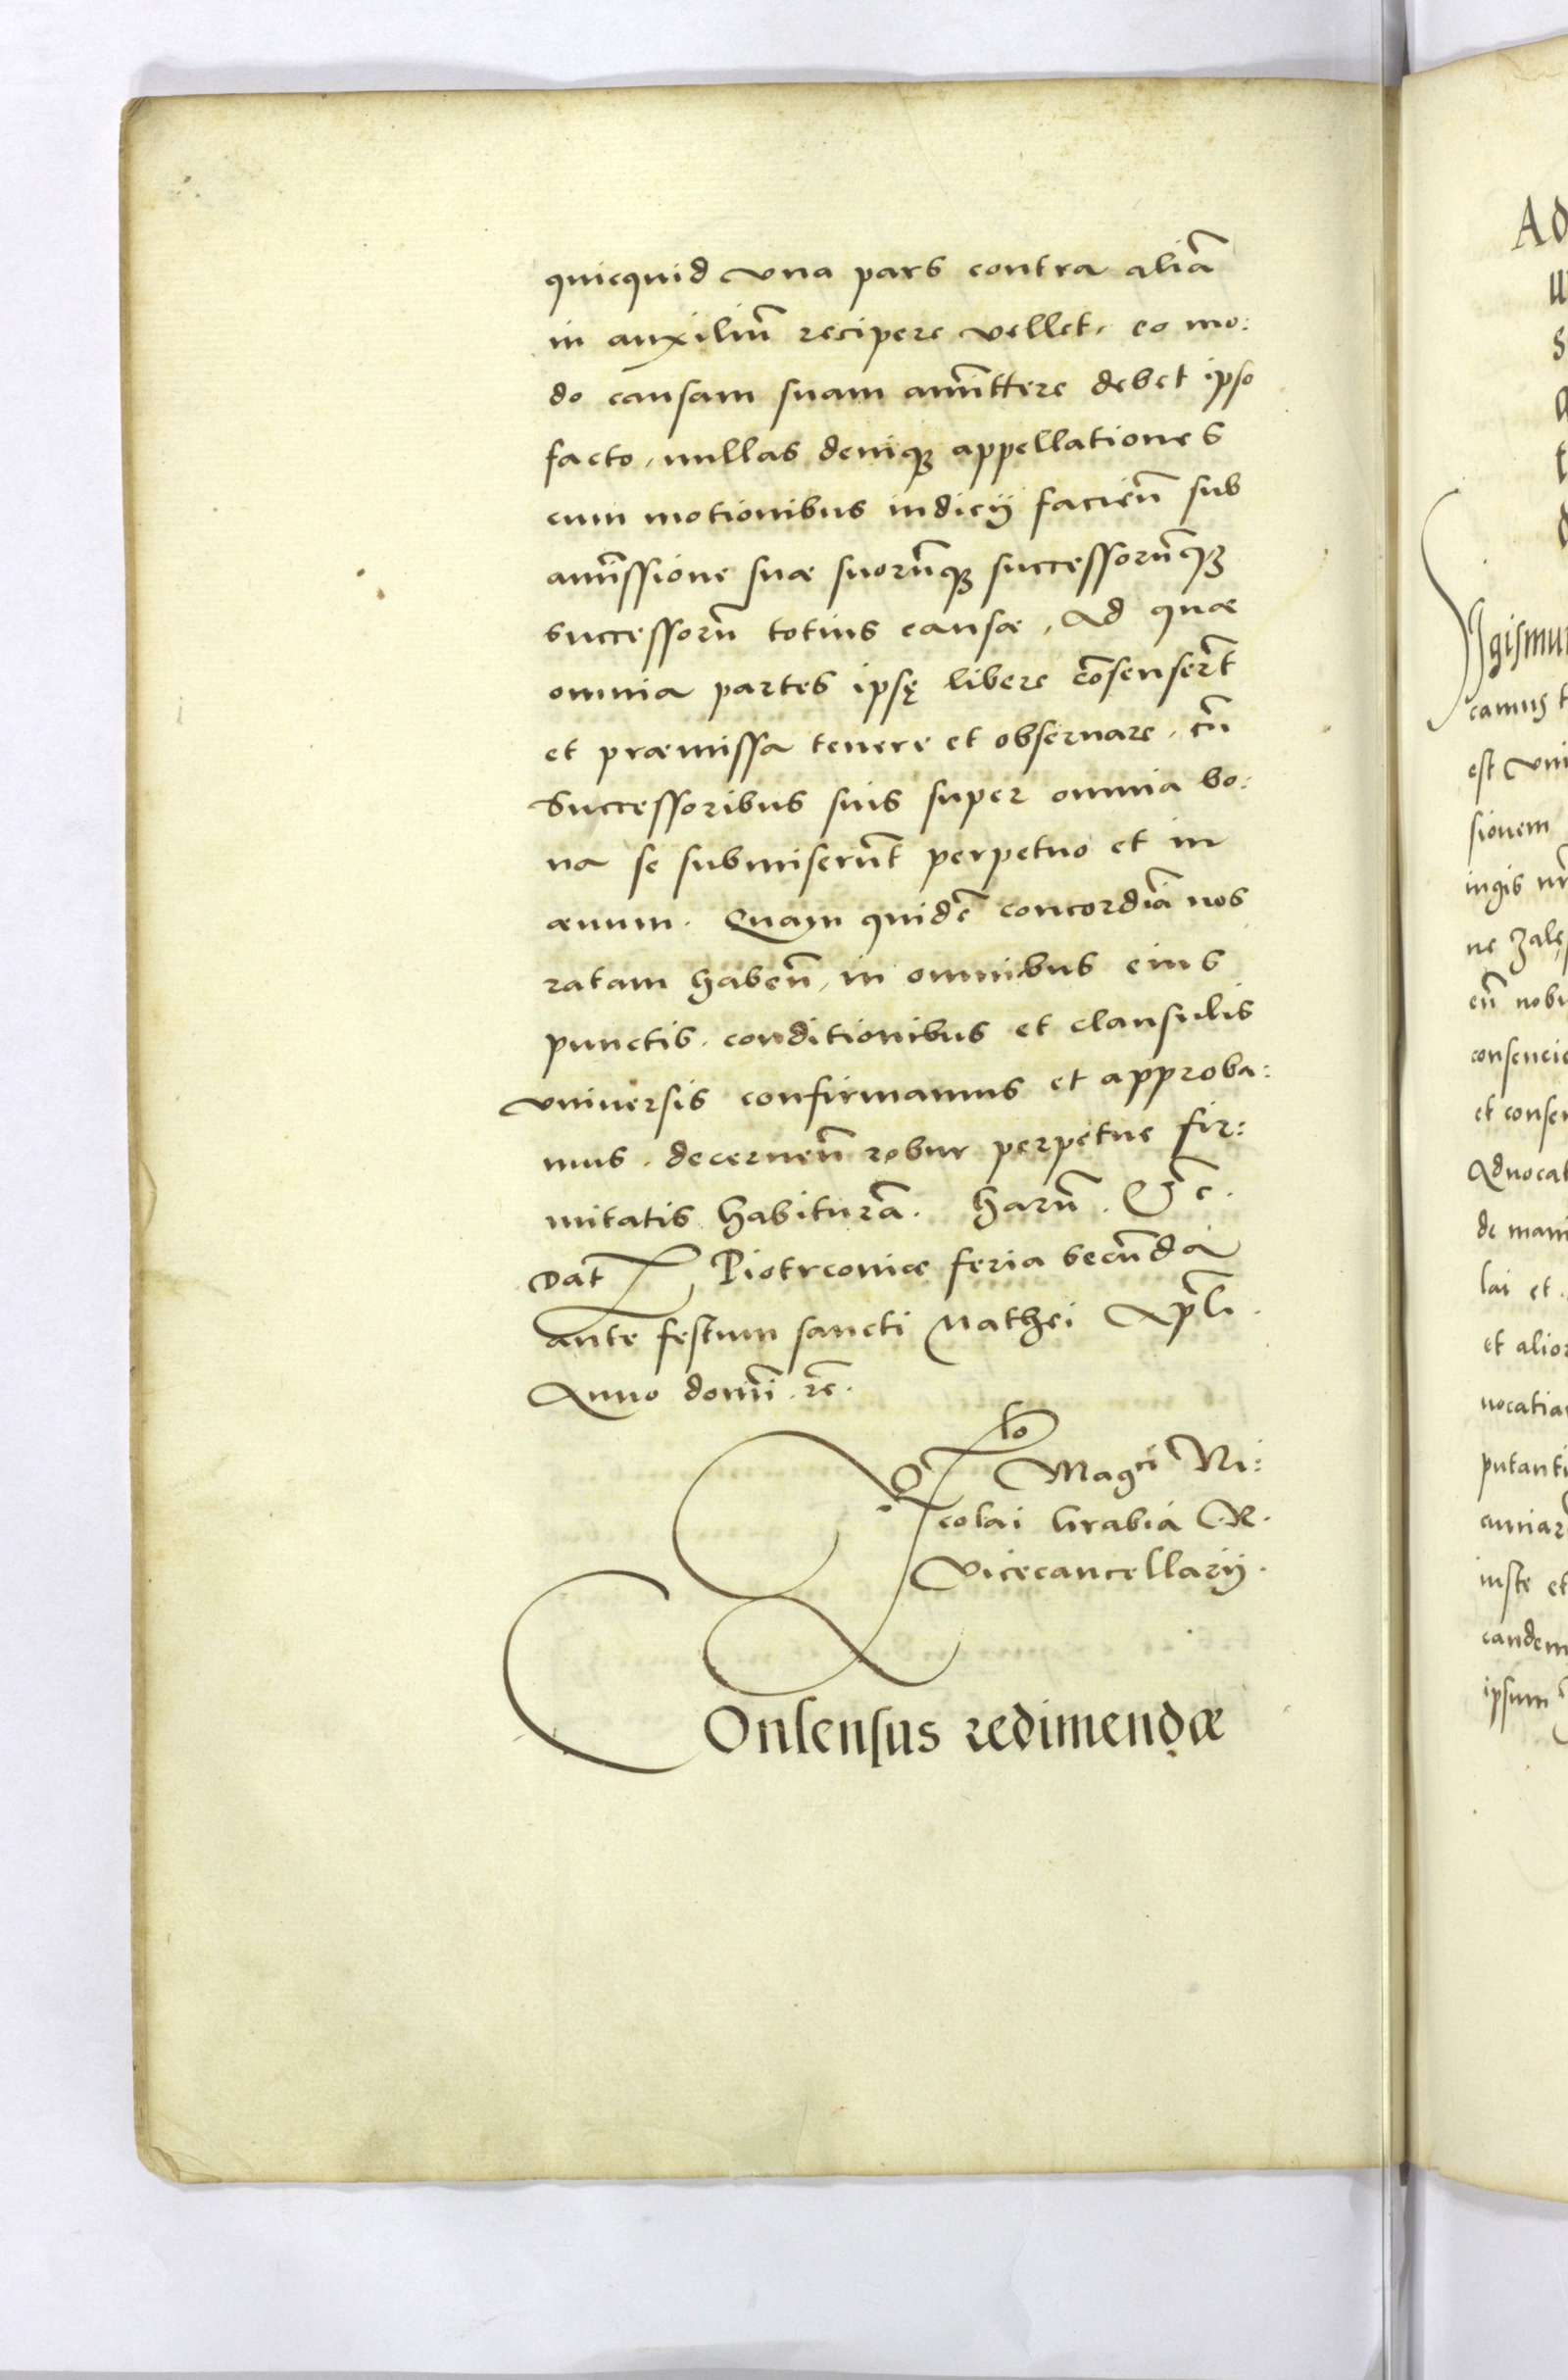 quicquid vna pars contra aliā
in auxiliū recipere vellet, eo mo:
do causam suam am̄ittere debet ipso
facto, nullas deniqꝫ appellationes
cum motionibus iudicij facien̄ sub
am̄issione suæ suorūqꝫ successorūqꝫ
successorū totius causæ, Ad quæ
omnia partes ipsę libere cōsenserūt
et præmissa tenere et obseruare, cū
Successoribus suis super omnia bo:
na se submiserūt perpetuo et in
æuum. Quam quidē concordiā nos
ratam haben̄, in omnibus eius
punctis, conditionibus et clausulis
vniuersis confirmamus et approba:
mus, decernen̄ robur perpetue fir:
mitatis habiturā. Harū. &c̄.
Dat Piotrcouiæ feria secūda
ante festum sancti Mathei Ap̄li.
Anno domī. rc̄.
Rlo Magci Ni:
colai Grabia C.R.
Vicecancellarij.
Consensus redimendæ
Ad
Sigismun
camus t
est vni
sionem
ingis nr̄
ne Zalę
cū nobi
consencie
et consen
Aduocat
de mani
lai et
et alior
uocatia
putanti
cuniar
iuste et
eandem
ipsum